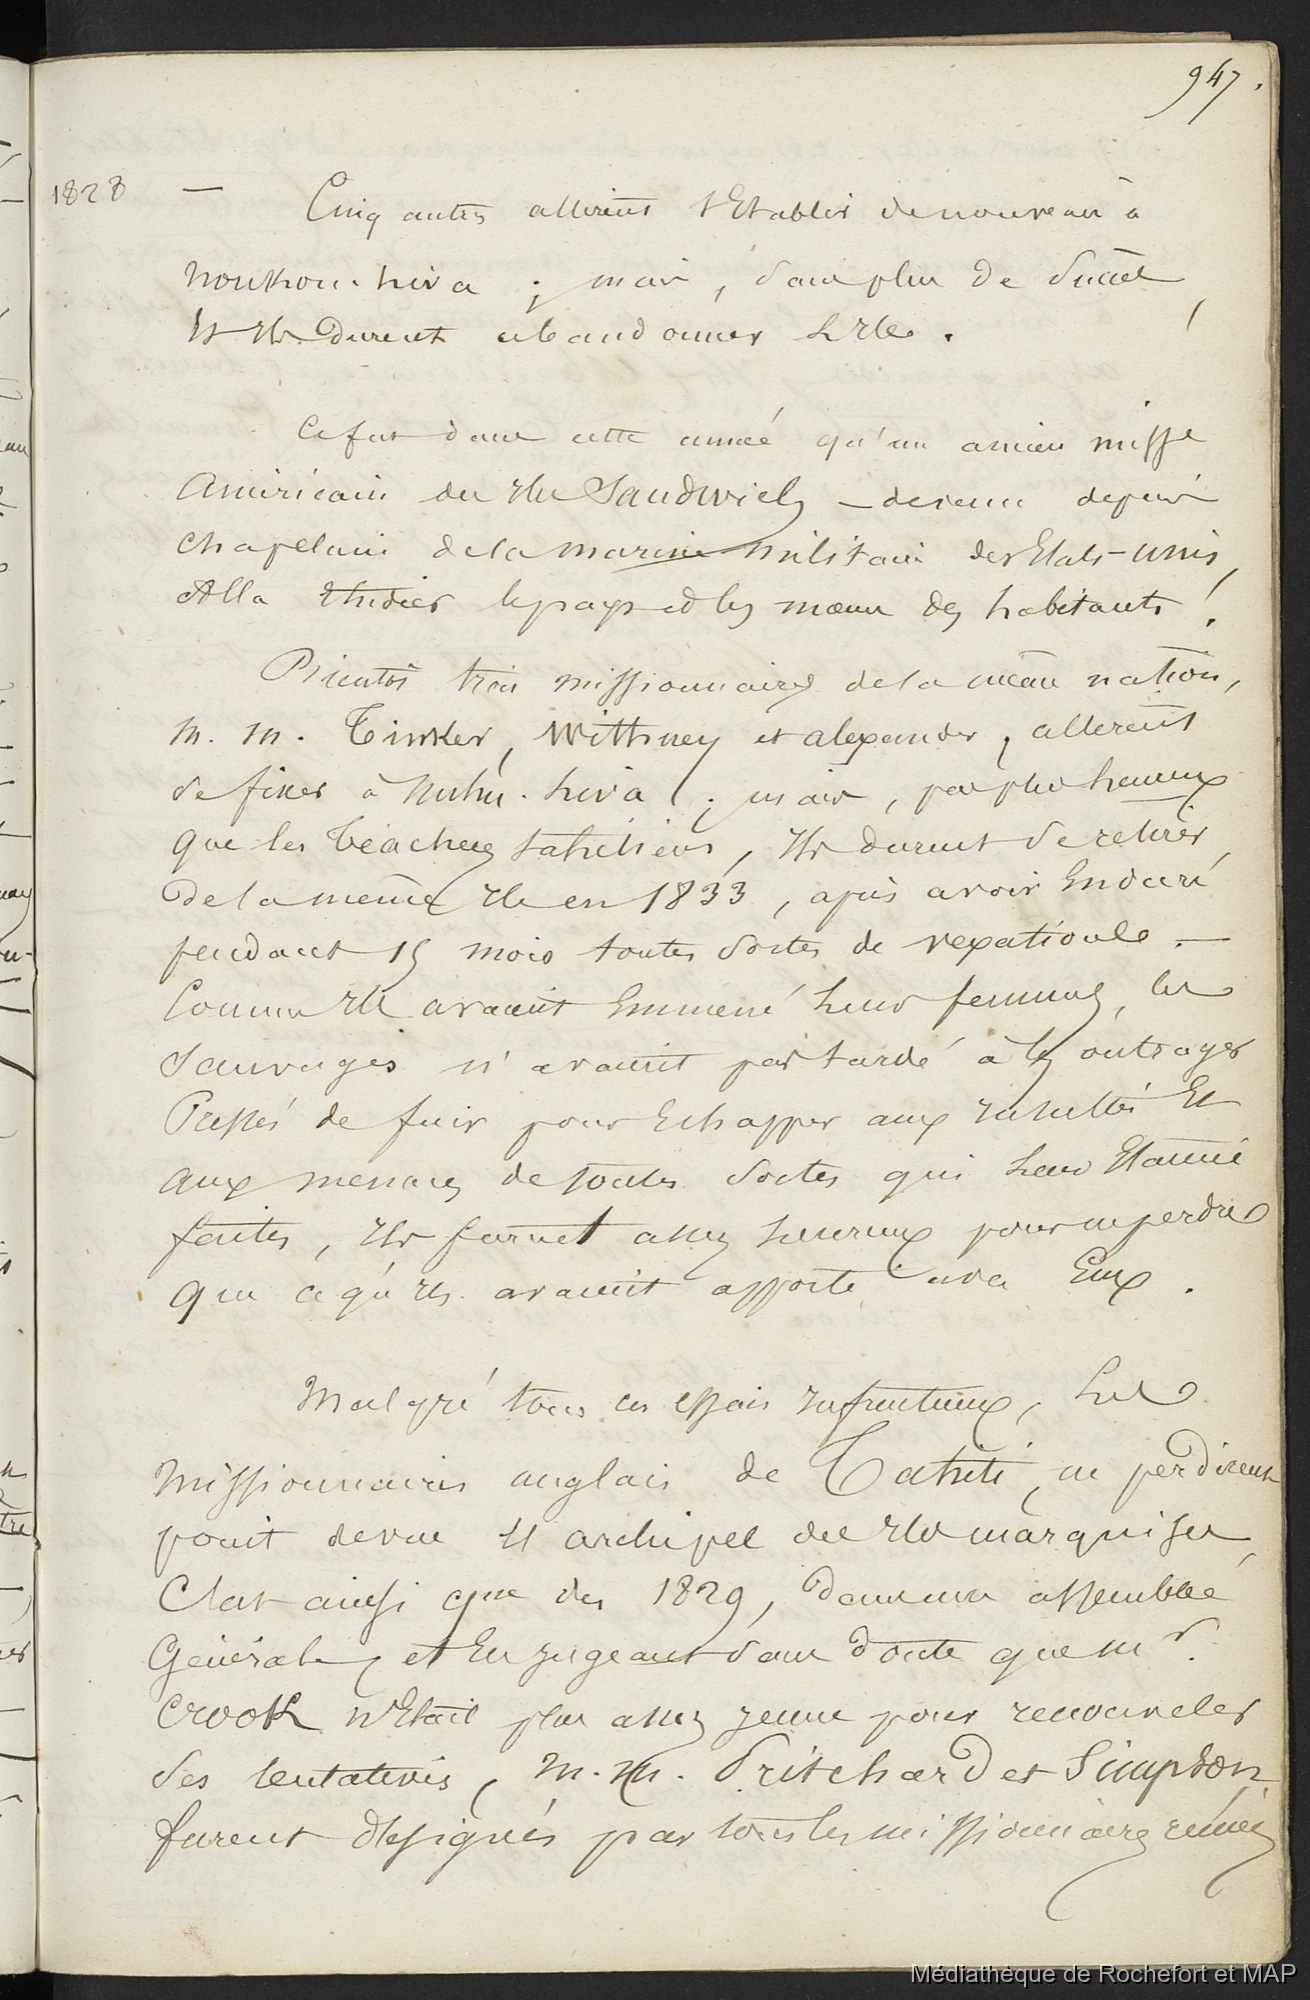 947.
1828 — Cinq autres allèrent s'Etablir de nouveau à
noukou-hiva ; mais, sans plus de succès,
Et Ils Durent abandonner L'Ile.
Ce fut dans cette année qu'un ancien missre
américain des Iles Sandwich — devenu depuis
chapelain de la marine militaire des Etats-unis,
alla Etudier le pays et les mœurs des habitants !
Bientôt trois missionnaires de la même nation,
m. m. Tinker, Withney et alexander, allèrent
se fixer à nuhu-hiva ; mais, pas plus heureux
que les teachers tahitiens, Ils durent se retirer
de la même Ile en 1833, après avoir Enduré
pendant 15 mois toutes sortes de vexations. —
Comme Ils avaient Emmené leurs femmes, les
Sauvages n'avaient pas tardé à les outrager
Pressés de fuir pour Echapper aux Insultes Et
aux menaces de toutes sortes qui leur Etaient
faites, Ils furent assez heureux pour ne perdre
que ce qu'Ils avaient apporté avec Eux.
Malgré tous ces essais Infructueux, Les
missionnaires anglais de Tahiti, ne perdirent
point de vue l'archipel des Iles marquises,
C'est ainsi que dès 1829, dans une assemblée
Générale, et En Jugeant sans doute que mr.
Crook n'Etait plus assez Jeune pour renouveler
ses tentatives, m. m. Pritchard et Simpson
furent désignés par tous les missionnaires réunis
Médiathèque de Rochefort et MAP